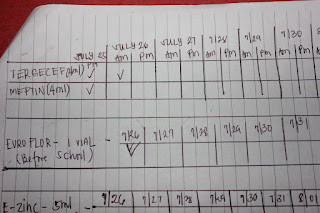 JULY 25 JULY 26 JULY 27 7/28 7/29 7/30
PM AM PM AM PM AM PM AM PM AM PM
TERRECEF (4ml) ✓ ✓
MEPTIN (4ml) ✓
7/26 7/27 7/28 7/29 7/30 7/31
EUROFLOR - 1 VIAL ✓
(Before School)
E-zinc - 5ml - 7/26 7/27 7/28 7/29 7/30 7/31 8/01